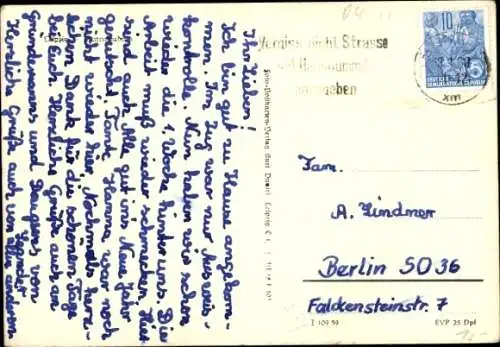 Ihr Lieben!
Ich bin gut zu Hause angekom-
men. Im Zug war nur Ausweis-
kontrolle. Nun haben wir schon
wieder die 1. Woche hinter uns. Die
Arbeit muß wieder schmecken. Hier
sind auch Alle gut ins Neue Jahr
gerutscht. Tante Hanna war noch
nicht wieder hier. Nochmals herz-
lichen Dank für die schönen Tage
bei Euch. Herzliche Grüße auch an
und Daugens von
Herzliche Grüße auch von allen anderen
Vergiss nicht Strasse
und Hausnummer
anzugeben
10
DEUTSCHE
Foto-Postkarten-Verlag Kurt Leipzig C 1
Fam.
A. Lindner
Berlin SO 36
Falckensteinstr. 7
I 109 59
EVP 25 Dpf